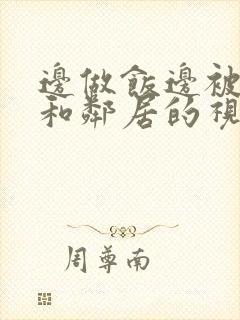 邊做飯邊被
和鄰居的視
周尊南